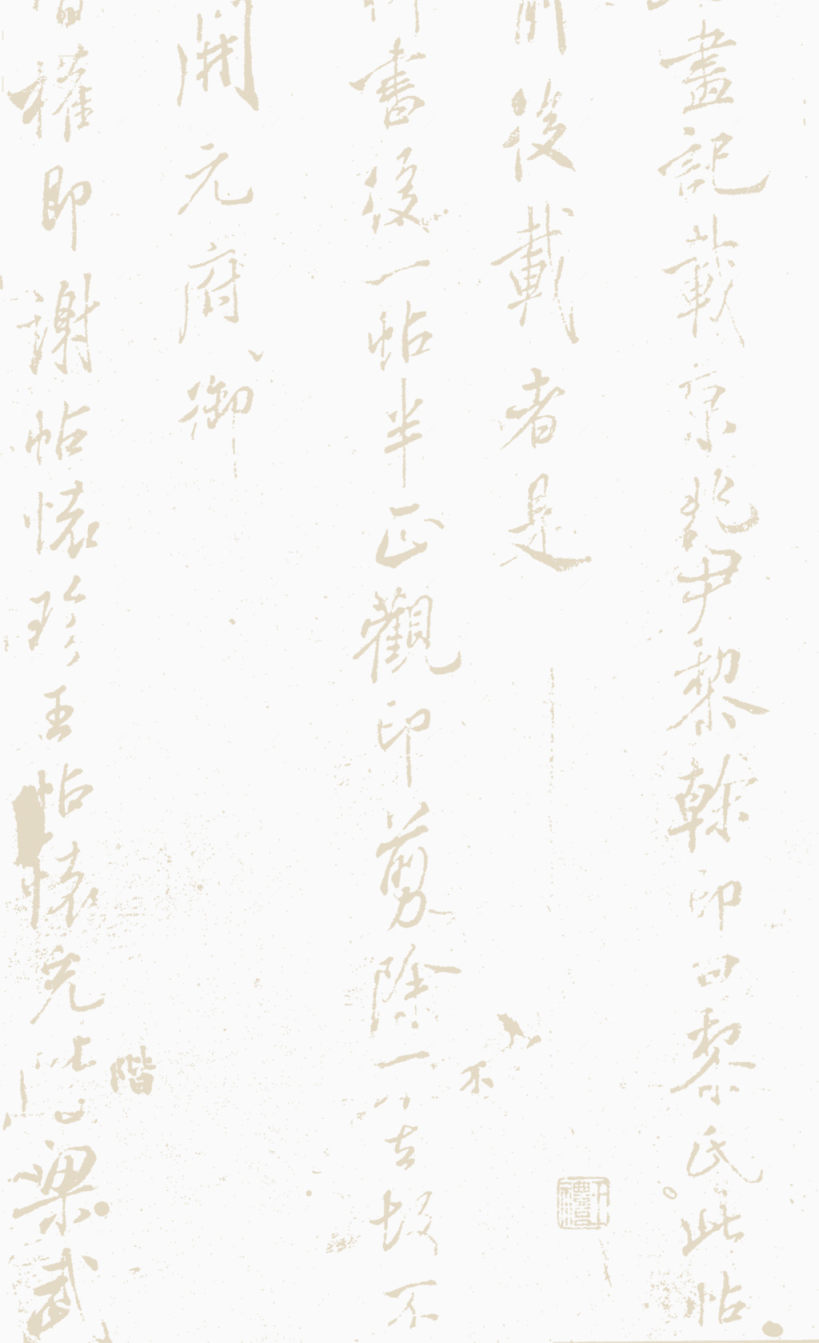 畫記載京兆尹黎幹印曰黎氏此帖
前後載者是
書後一帖半正觀印剪除一不古故不
開元府御
權即謝帖懷珍王帖懷充階梁武